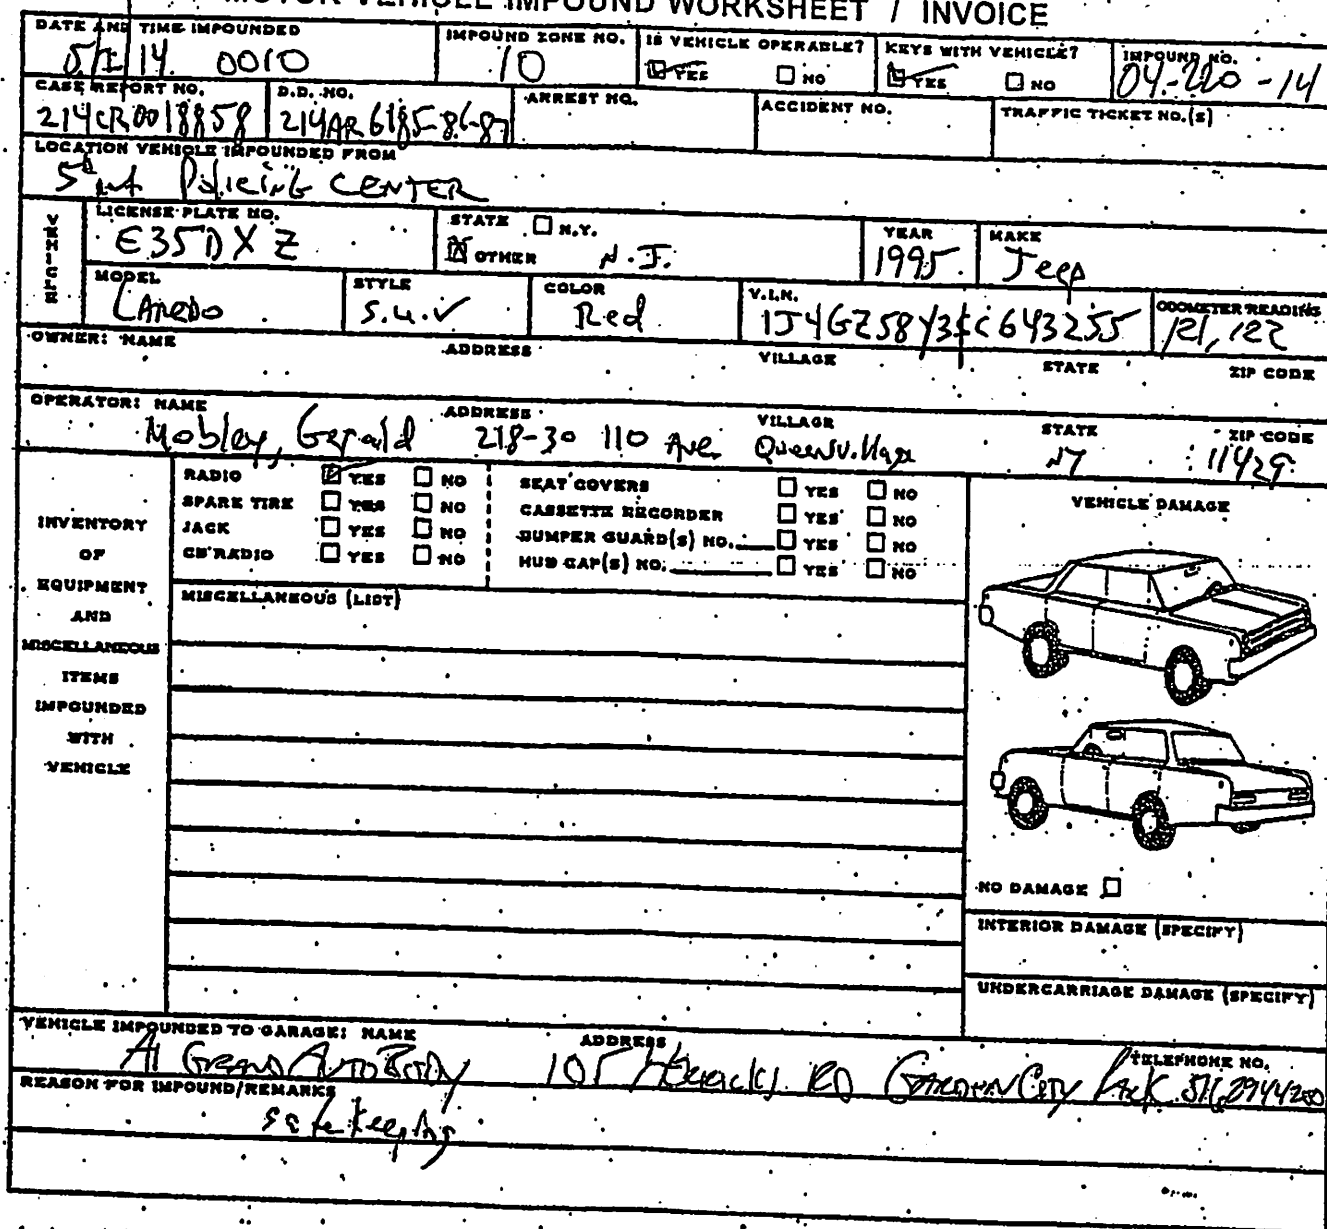 MOTOR VEHICLE IMPOUND WORKSHEET / INVOICE
DATE AND TIME IMPOUNDED
5/1/14 0010
IMPOUND ZONE NO.
10
IS VEHICLE OPERABLE?
YES NO
KEYS WITH VEHICLE?
YES NO
IMPOUND NO.
04-220-14
CASE REPORT NO.
214CR0018858
D.D. NO.
214AR6185-86-87
ARREST NO.
ACCIDENT NO.
TRAFFIC TICKET NO.(S)
LOCATION VEHICLE IMPOUNDED FROM
5th Policing CENTER
VEHICLE
LICENSE PLATE NO.
E35DXZ
STATE N.Y.
OTHER N.J.
YEAR
1995
MAKE
Jeep
MODEL
LAREDO
STYLE
S.U.V
COLOR
Red
V.I.N.
1J4GZ58Y3SC643255
ODOMETER READING
121,122
OWNER: NAME ADDRESS VILLAGE STATE ZIP CODE
OPERATOR: NAME ADDRESS VILLAGE STATE ZIP CODE
Mobley, Gerald 218-30 110 Ave. Queens Village NY 11429
INVENTORY
OF
EQUIPMENT
AND
MISCELLANEOUS
ITEMS
IMPOUNDED
WITH
VEHICLE
RADIO YES NO
SPARE TIRE YES NO
JACK YES NO
CB RADIO YES NO
SEAT COVERS YES NO
CASSETTE RECORDER YES NO
BUMPER GUARD(S) NO. YES NO
HUB CAP(S) NO. YES NO
MISCELLANEOUS (LIST)
VEHICLE DAMAGE
NO DAMAGE
INTERIOR DAMAGE (SPECIFY)
UNDERCARRIAGE DAMAGE (SPECIFY)
VEHICLE IMPOUNDED TO GARAGE: NAME ADDRESS TELEPHONE NO.
A1 Grand Auto Body 105 Rd Garden City Park 516 2944200
REASON FOR IMPOUND/REMARKS
safe keeping